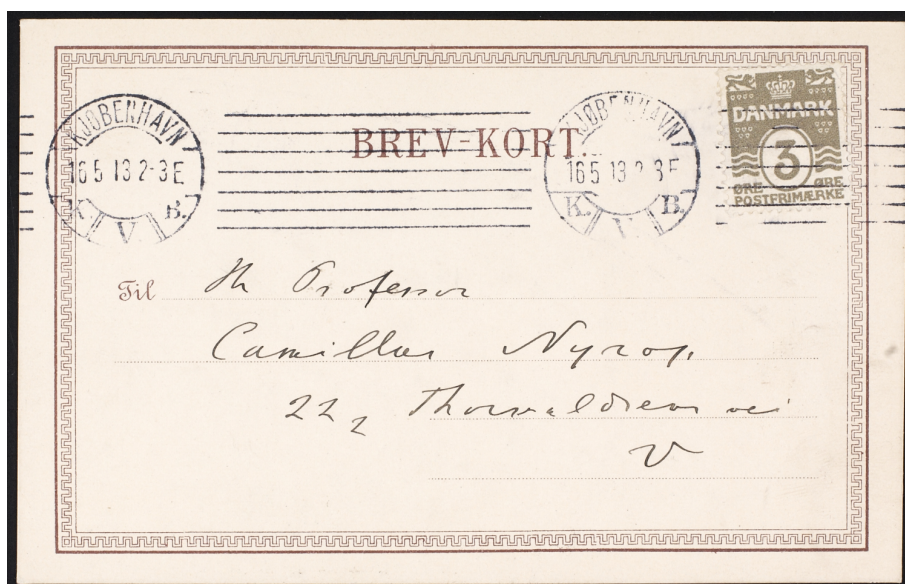 KJØBENHAVN
16 5 13 2-3E
K. V B.
BREV-KORT.
KJØBENHAVN
16 5 13 2-3E
K. V B.
DANMARK
3
ØRE ØRE
POSTFRIMÆRKE
Til Hr Professor
Camillus Nyrop.
22 2 Thorvaldsensvei
V